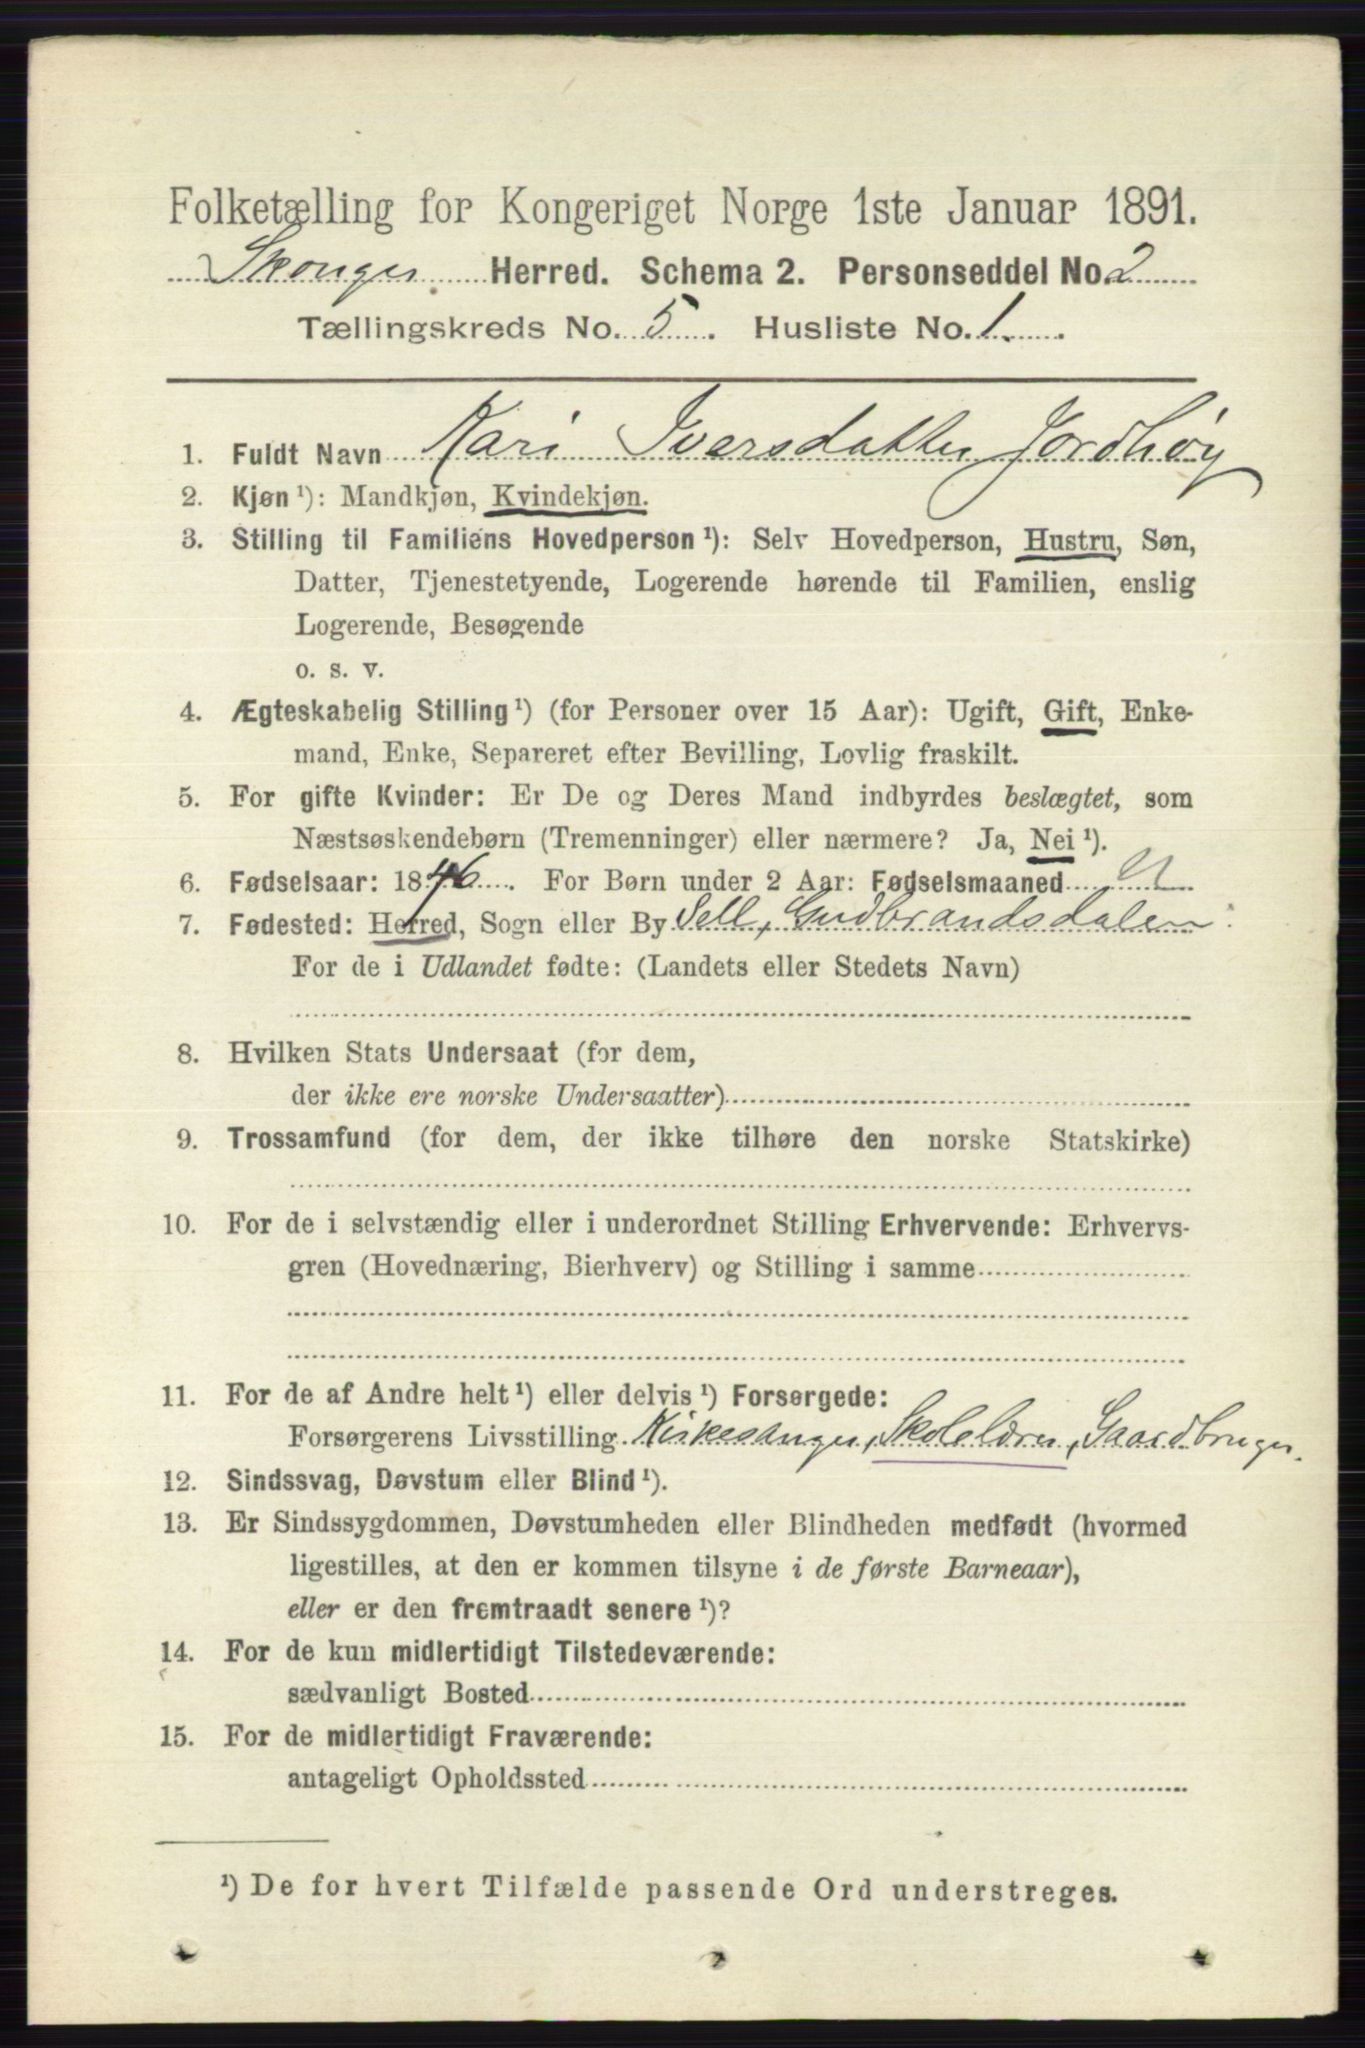 Folketælling for Kongeriget Norge 1ste Januar 1891.
Skonger Herred. Schema 2. Personseddel No. 2
Tællingskreds No. 5. Husliste No. 1.
1. Fuldt Navn Kari Iversdatter Jordhøy
2. Kjøn ¹): Mandkjøn, Kvindekjøn.
3. Stilling til Familiens Hovedperson ¹): Selv Hovedperson, Hustru, Søn,
Datter, Tjenestetyende, Logerende hørende til Familien, enslig
Logerende, Besøgende
o. s. v.
4. Ægteskabelig Stilling ¹) (for Personer over 15 Aar): Ugift, Gift, Enke-
mand, Enke, Separeret efter Bevilling, Lovlig fraskilt.
5. For gifte Kvinder: Er De og Deres Mand indbyrdes beslægtet, som
Næstsøskendebørn (Tremenninger) eller nærmere? Ja, Nei ¹).
6. Fødselsaar: 1846. For Børn under 2 Aar: Fødselsmaaned
7. Fødested: Herred, Sogn eller By Sell, Gudbrandsdalen
For de i Udlandet fødte: (Landets eller Stedets Navn)
8. Hvilken Stats Undersaat (for dem,
der ikke ere norske Undersaatter)
9. Trossamfund (for dem, der ikke tilhøre den norske Statskirke)
10. For de i selvstændig eller i underordnet Stilling Erhvervende: Erhvervs-
gren (Hovednæring, Bierhverv) og Stilling i samme
11. For de af Andre helt ¹) eller delvis ¹) Forsørgede:
Forsørgerens Livsstilling Kirkesanger, Skolelærer, Gaardbruger.
12. Sindssvag, Døvstum eller Blind ¹).
13. Er Sindssygdommen, Døvstumheden eller Blindheden medfødt (hvormed
ligestilles, at den er kommen tilsyne i de første Barneaar),
eller er den fremtraadt senere ¹)?
14. For de kun midlertidigt Tilstedeværende:
sædvanligt Bosted
15. For de midlertidigt Fraværende:
antageligt Opholdssted
¹) De for hvert Tilfælde passende Ord understreges.